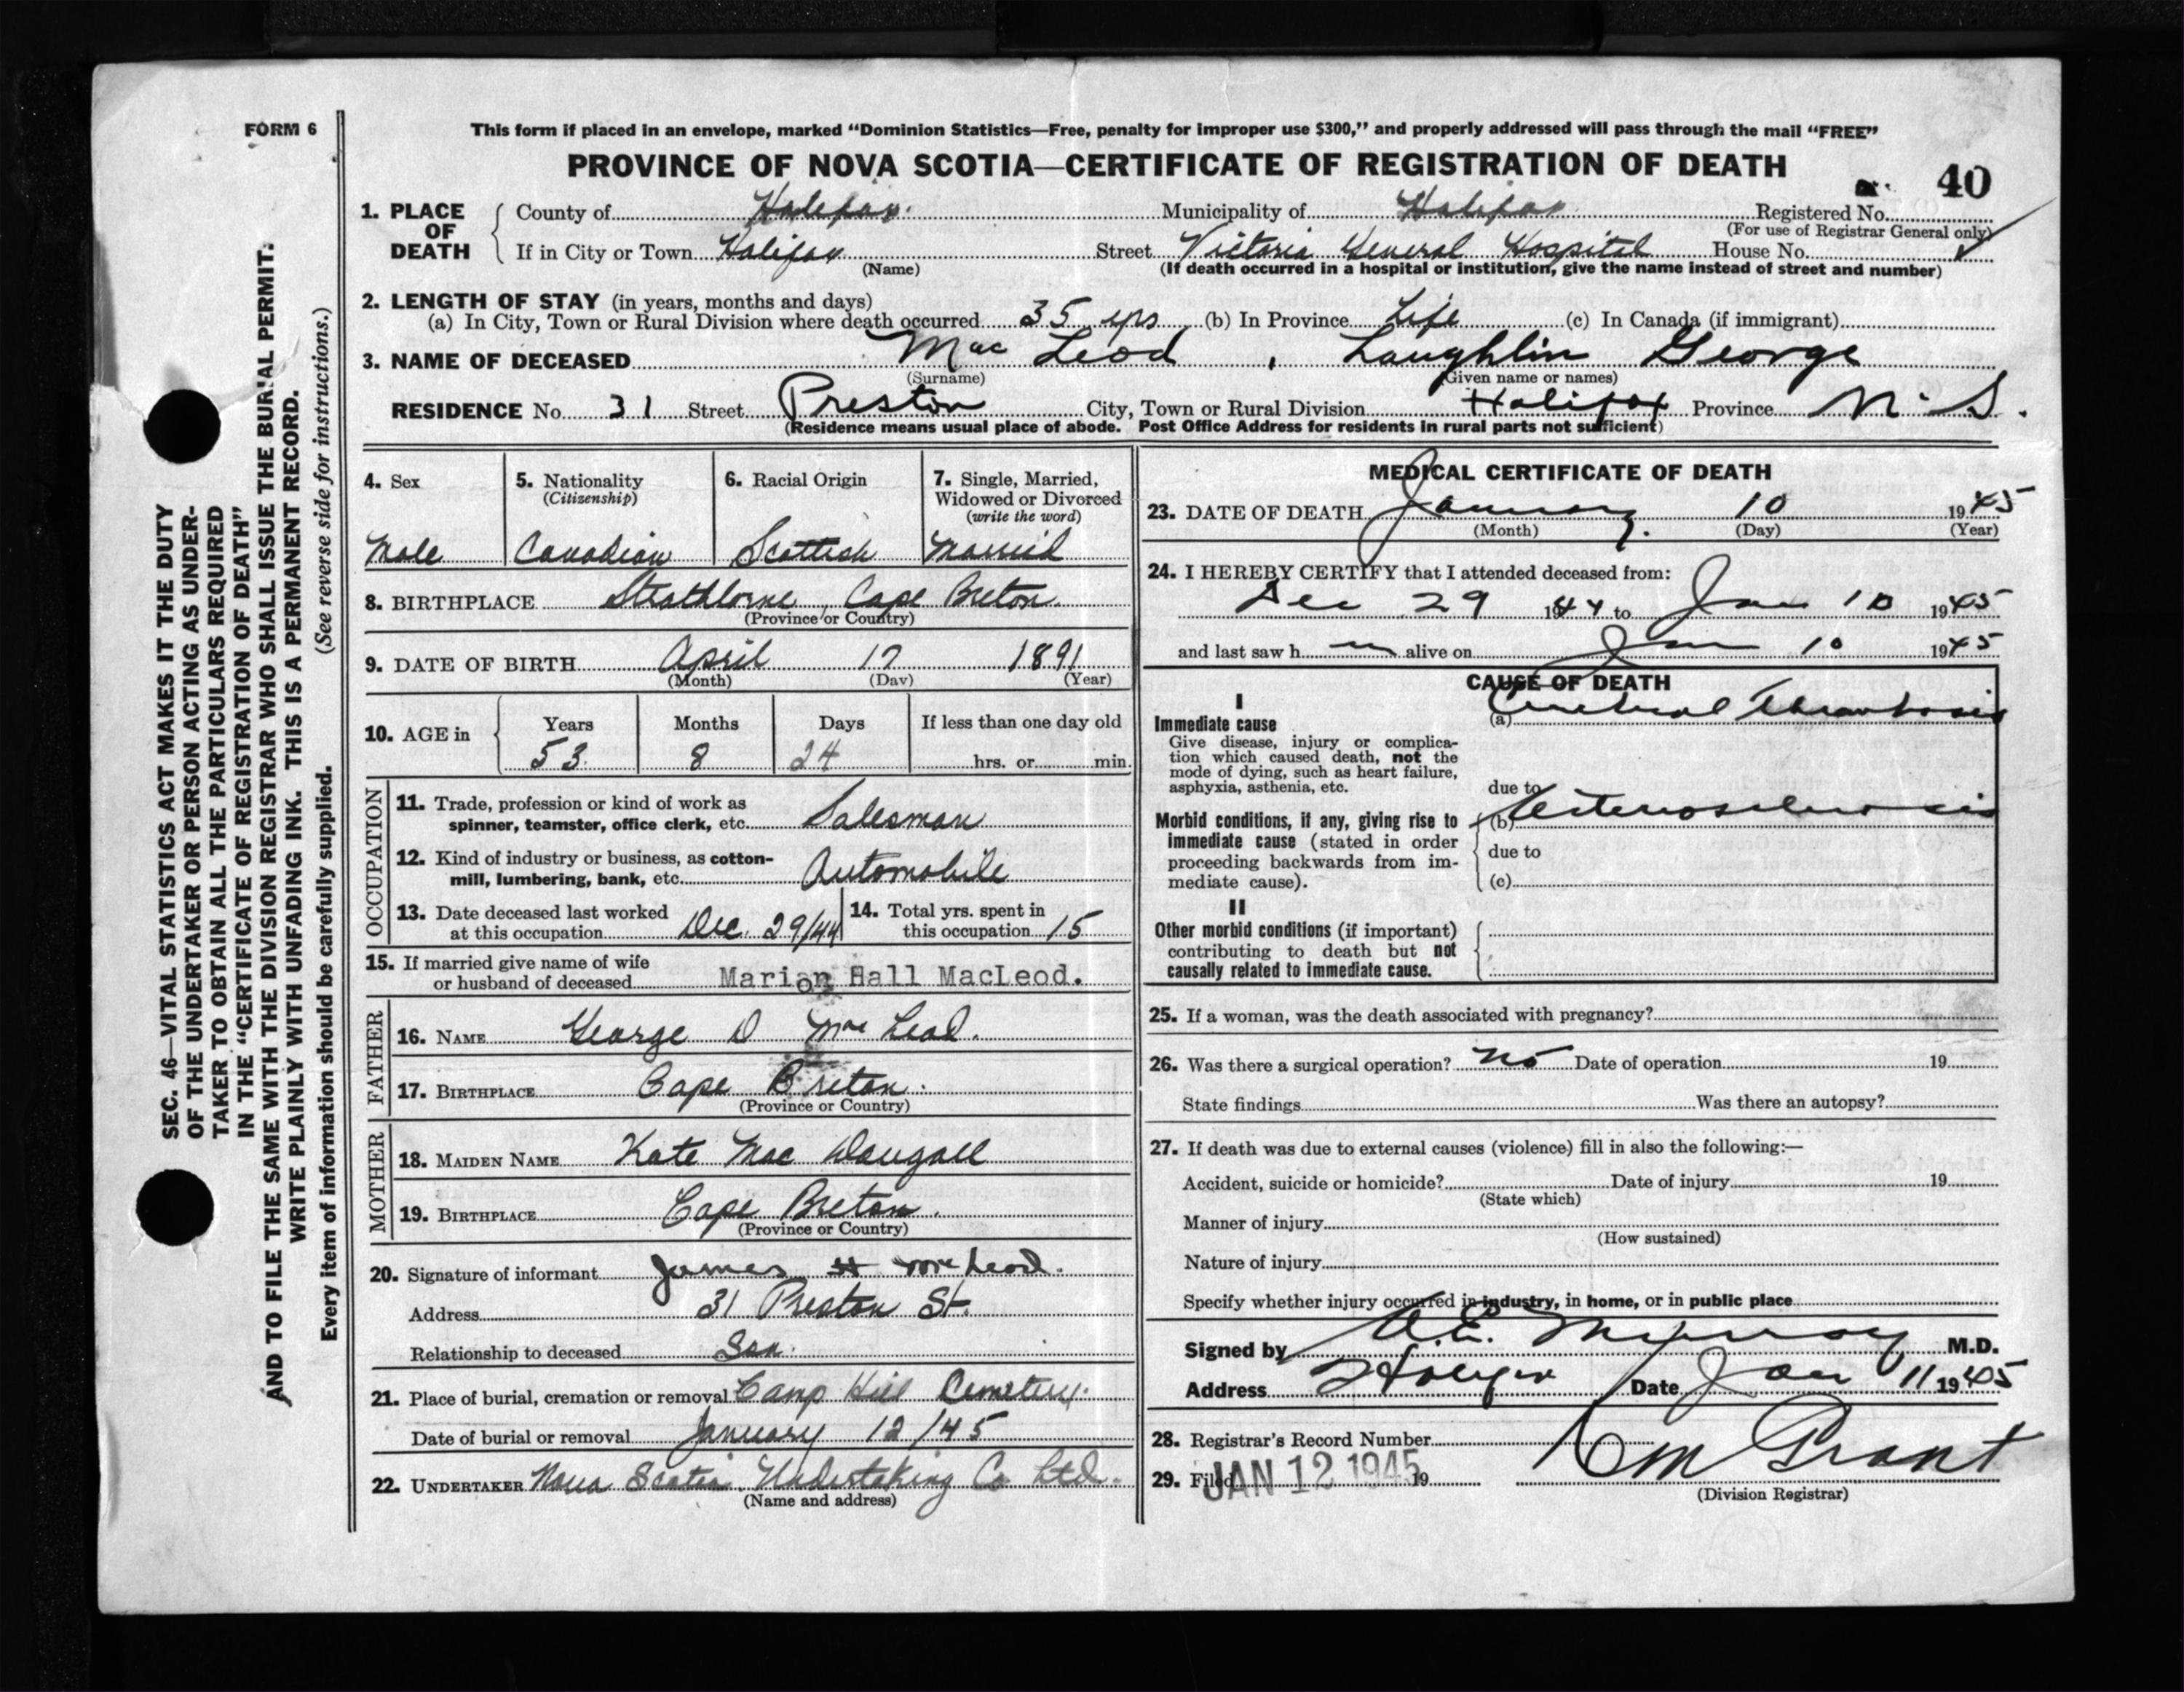 FORM 6
This form if placed in an envelope, marked "Dominion Statistics—Free, penalty for improper use $300," and properly addressed will pass through the mail "FREE"
PROVINCE OF NOVA SCOTIA—CERTIFICATE OF REGISTRATION OF DEATH
40
1. PLACE OF DEATH
County of Halifax. Municipality of Halifax Registered No.
(For use of Registrar General only)
If in City or Town Halifax Street Victoria General Hospital House No.
(Name) (If death occurred in a hospital or institution, give the name instead of street and number)
2. LENGTH OF STAY (in years, months and days)
(a) In City, Town or Rural Division where death occurred 35 yrs (b) In Province Life (c) In Canada (if immigrant)
3. NAME OF DECEASED MacLeod , Laughlin George
(Surname) (Given name or names)
RESIDENCE No. 31 Street Preston City, Town or Rural Division Halifax Province N. S.
(Residence means usual place of abode. Post Office Address for residents in rural parts not sufficient)
4. Sex
Male
5. Nationality
(Citizenship)
Canadian
6. Racial Origin
Scottish
7. Single, Married,
Widowed or Divorced
(write the word)
Married
8. BIRTHPLACE Strathlorne, Cape Breton.
(Province or Country)
9. DATE OF BIRTH April 17 1891
(Month) (Day) (Year)
10. AGE in
Years Months Days If less than one day old
53 8 24 hrs. or min.
OCCUPATION
11. Trade, profession or kind of work as
spinner, teamster, office clerk, etc. Salesman
12. Kind of industry or business, as cotton-
mill, lumbering, bank, etc. Automobile
13. Date deceased last worked
at this occupation Dec. 29/44
14. Total yrs. spent in
this occupation 15
15. If married give name of wife
or husband of deceased Marion Hall MacLeod.
FATHER
16. NAME George D MacLeod.
17. BIRTHPLACE Cape Breton.
(Province or Country)
MOTHER
18. MAIDEN NAME Kate MacDougall
19. BIRTHPLACE Cape Breton.
(Province or Country)
20. Signature of informant James H McLeod.
Address 31 Preston St.
Relationship to deceased Son.
21. Place of burial, cremation or removal Camp Hill Cemetery.
Date of burial or removal January 12/45
22. UNDERTAKER Nova Scotia Undertaking Co Ltd.
(Name and address)
MEDICAL CERTIFICATE OF DEATH
23. DATE OF DEATH January 10 1945
(Month) (Day) (Year)
24. I HEREBY CERTIFY that I attended deceased from:
Dec 29 1944 to Jan 10 1945
and last saw h im alive on Jan 10 1945
CAUSE OF DEATH
I
Immediate cause
Give disease, injury or complica-
tion which caused death, not the
mode of dying, such as heart failure,
asphyxia, asthenia, etc.
(a) Cerebral Thrombosis
due to
Morbid conditions, if any, giving rise to
immediate cause (stated in order
proceeding backwards from im-
mediate cause).
(b) Arteriosclerosis
due to
(c)
II
Other morbid conditions (if important)
contributing to death but not
causally related to immediate cause.
25. If a woman, was the death associated with pregnancy?
26. Was there a surgical operation? No Date of operation 19
State findings Was there an autopsy?
27. If death was due to external causes (violence) fill in also the following:—
Accident, suicide or homicide? Date of injury 19
(State which)
Manner of injury
(How sustained)
Nature of injury
Specify whether injury occurred in industry, in home, or in public place
Signed by A.E. M.D.
Address Halifax Date Jan 11 1945
28. Registrar's Record Number
29. Filed JAN 12 1945 19
M Grant
(Division Registrar)
SEC. 46—VITAL STATISTICS ACT MAKES IT THE DUTY
OF THE UNDERTAKER OR PERSON ACTING AS UNDER-
TAKER TO OBTAIN ALL THE PARTICULARS REQUIRED
IN THE "CERTIFICATE OF REGISTRATION OF DEATH"
AND TO FILE THE SAME WITH THE DIVISION REGISTRAR WHO SHALL ISSUE THE BURIAL PERMIT.
WRITE PLAINLY WITH UNFADING INK. THIS IS A PERMANENT RECORD.
Every item of information should be carefully supplied. (See reverse side for instructions.)